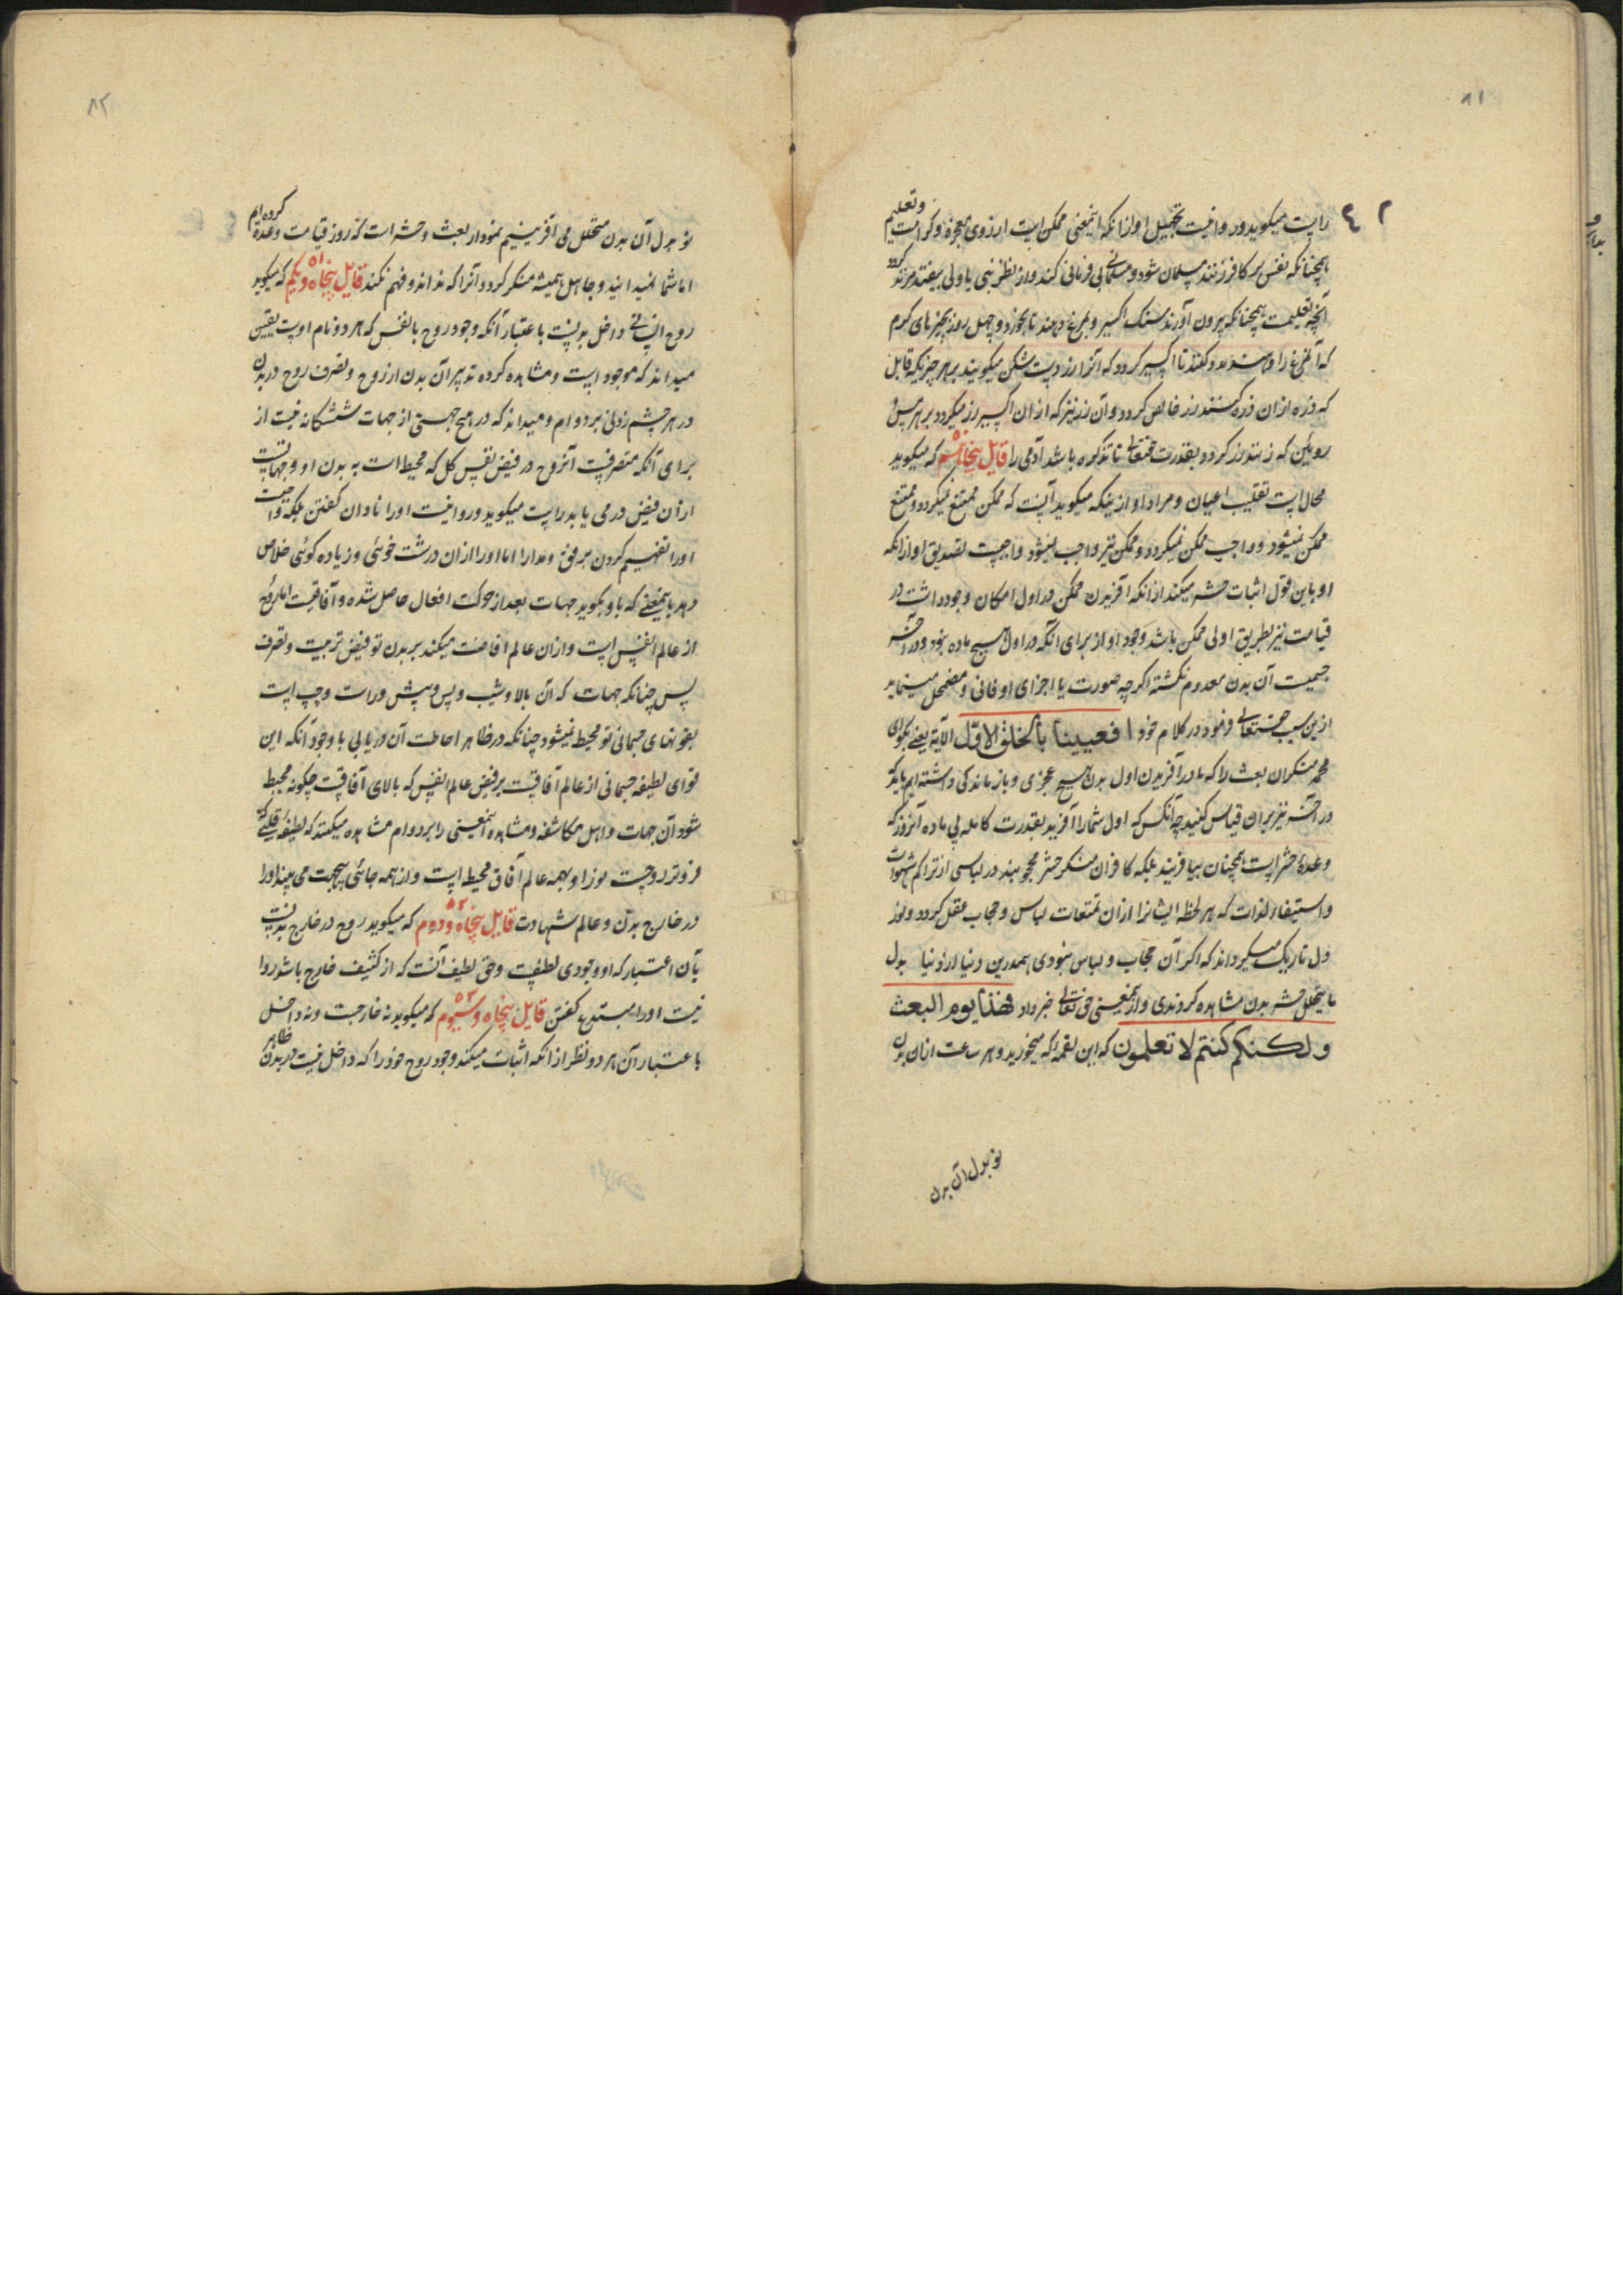 ٨١
و تعلیم
راست میکوید و روا نیست تجهیل او از انکه اینمعنی ممکن است از روی معجزه و کرامت
همچنانکه نفس هر کافر زنند مسلمان شود و مسلمانی بی فرمانی کند و از نظر نبی یا ولی بیفتد مرتد کردد
آنچه تعلیمست همچنانکه بیرون آورند سنک اکسیر و بمرغ دهند تا بخورد و چهل روز بچیزهای کرم
که آن مرغ را و کنند تا اکسیر کردد که آنرا میکویند بر هر چیزیکه قابل
که ذره از ان ذره کنند زر خالص کردد و آن زر نیز که از ان اکسیر زر میکردد بر هر مس و
رویئن که زنند زر کردد بقدرت حقتعالی تا تذکره باشد آدمی را قایل پنجاهم که میکوید
محال است تقلیب اعیان و مراد او از ینکه میکوید آنست که ممکن ممتنع نمیکردد و ممتنع
ممکن نمیشود و واجب ممکن نمیکردد و ممکن نیز واجب نمیشود واجبست تصدیق او از انکه
او باین قول اثبات حشر میکند از انکه آفریدن ممکن در اول امکان وجود داشت در
قیامت نیز بطریق اولی ممکن باشد وجود او از برای انکه در اول هیچ ماده نبود و در آخر
جسمیت آن بدن معدوم نکشته اکرچه صورت یا اجزای او فانی و مضمحل مینماید
ازین سبب حقتعالی فرمود در کلام خود افعیینا بالخلق الاول الآیة یعنی بکو ای
محمد منکران بعث را که ما در آفریدن اول بدن هیچ عجزی و باز ماندکی داشته ایم باید که
در آخر نیز بران قیاس کنید چه آنکس که اول شما را آفرید بقدرت کامله بی ماده آنروز که
وعدهٔ حشر است همچنان بیافریند بلکه کافران منکر حشر محجوبند در لباسی از تراکم شهوات
و استیفا لذات که هر لحظه ایشانرا از ان تمتعات لباس و حجاب عقل کردد و نور
دل تاریک میکرداند که اکر آن حجاب و لباس نبودی همدرین دنیا از دنیا بدل
ما یتحلل حشر بدن مشاهده کردندی و ازینمعنی حق تعالی خبر داد فهذا یوم البعث
ولکنکم کنتم لا تعلمون که این لقمه که میخورید و هر ساعت از ان بدن
نو بدل آن بدن
٨٢
نو بدل آن بدن متحلل می آفرینیم نمودار بعث و حشر است که روز قیامت وعده کرده ایم
اما شما نمیدانید و جاهل همیشه منکر کردد آنرا که نداند و فهم نکند قایل پنجاه و یکم ٥١ که میکوید
روح انسانی داخل بدنست باعتبار آنکه وجود روح با نفس که هر دو نام اوست یقین
میداند که موجود است و مشاهده کرده تدبیر آن بدن از روح و تصرف روح در بدن
در هر چشم زدنی بر دوام و میداند که در هیچ جهتی از جهات ششکانه نیست از
برای آنکه متصرفست آنروح در فیض نفس کل که محیط است به بدن او و جهاتست
از ان فیض در می یابد راست میکوید و روا نیست او را نادان کفتن بلکه واجبست
او را تفهیم کردن برفق و مدارا اما او را از ان درشت خوئی و زیاده کوئی خلاص
دهد باینمعنی که باو بکوید جهات بعد از حرکت افعال حاصل شده و آفاقیست اما روح
از عالم انفس است و از ان عالم افاضت میکند بر بدن تو فیض تربیت و تصرف
پس چنانکه جهات که آن بالا و شیب و پس و پیش و راست و چپ است
بقوتهای جسمانی تو محیط نمیشود چنانکه در ظاهر احاطت آن دریابی با وجود آنکه این
قوای لطیفه جسمانی از عالم آفاقیست بر فیض عالم انفس که بالای آفاقست چکونه محیط
شود آن جهات و اهل مکاشفه و مشاهده اینمعنی را بر دوام مشاهده میکنند که لطیفهٔ قلبی که
فروتر از روحست نور او بهمه عالم آفاق محیط است و از همه جائی بیجهت می بیند او را
در خارج بدن و عالم شهادت قایل پنجاه و دوم ٥٢ که میکوید روح در خارج بدنست
بآن اعتبار که او وجودی لطیفست و حق لطیف آنست که از کثیف خارج باشد روا
نیست او را مبتدع کفتن قایل پنجاه و سیوم ٥٣ که میکوید نه خارجست و نه داخل
باعتبار آن هر دو نظر از انکه اثبات میکند وجود روح خود را که داخل نیست در بدن ظاهر